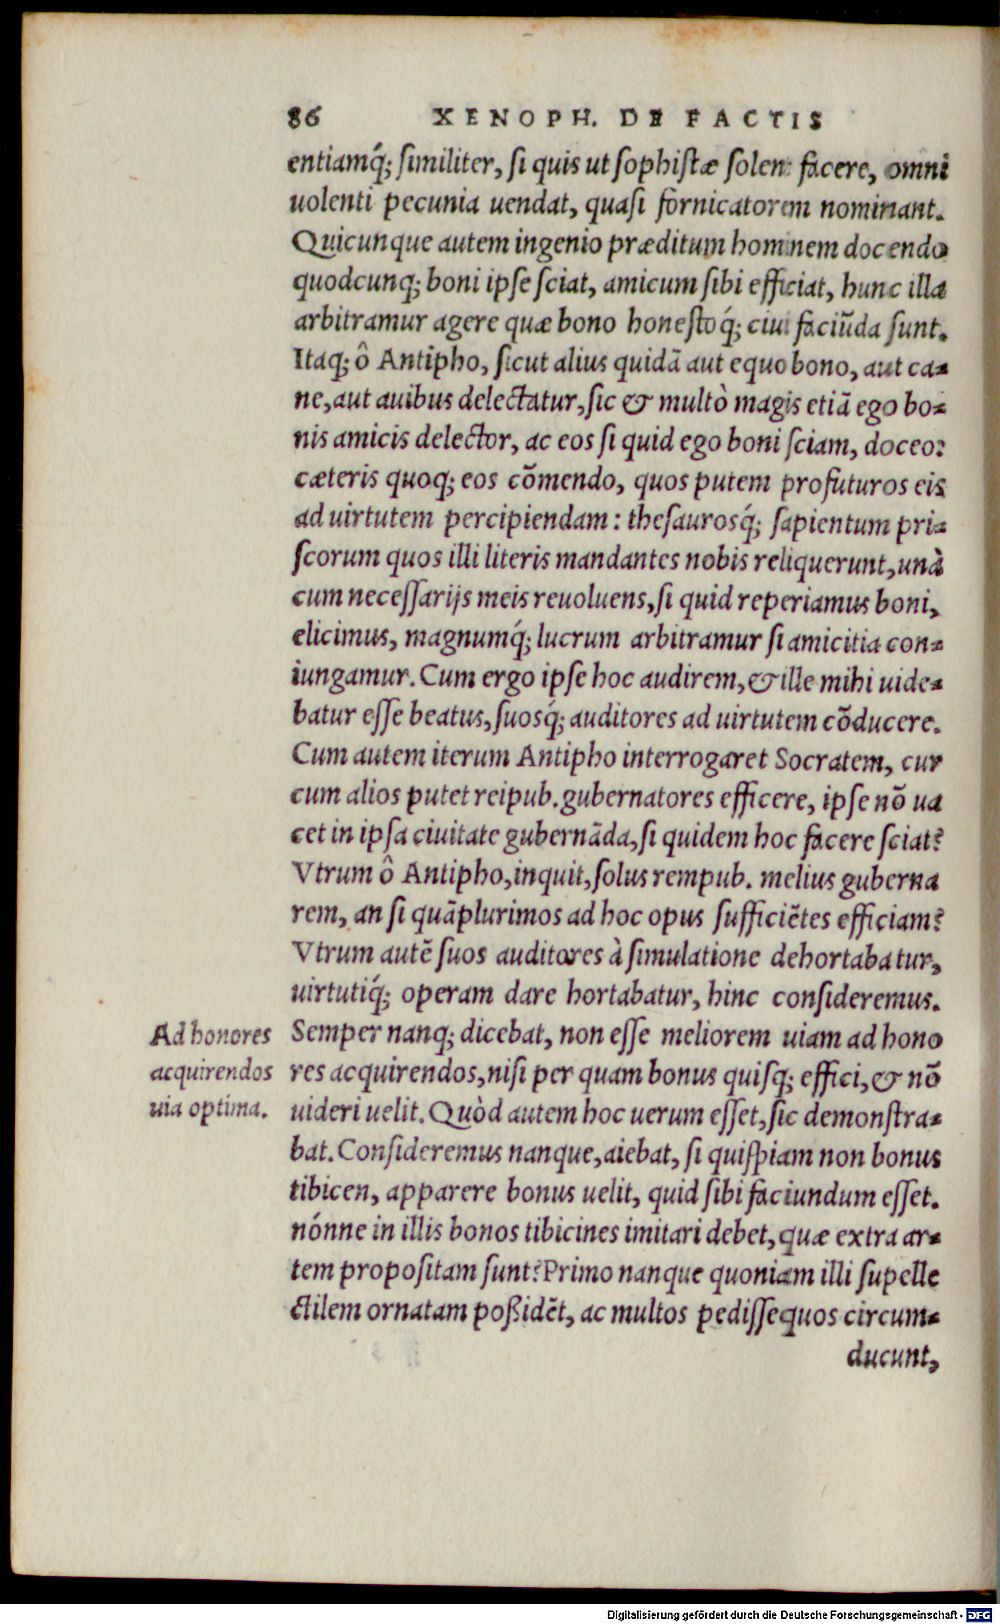 86 XENOPH. DE FACTIS
entiamq́; ſimiliter, ſi quis ut ſophiſtæ ſolent facere, omni
uolenti pecunia uendat, quaſi fornicatorem nominant.
Quicunque autem ingenio præditum hominem docendo
quodcunq; boni ipſe ſciat, amicum ſibi efficiat, hunc illa
arbitramur agere quæ bono honeſtoq́; ciui faciũda ſunt.
Itaq; ô Antipho, ſicut alius quidã aut equo bono, aut ca-
ne, aut auibus delectatur, ſic & multò magis etiã ego bo-
nis amicis delector, ac eos ſi quid ego boni ſciam, doceo:
cæteris quoq; eos cõmendo, quos putem profuturos eis
ad uirtutem percipiendam: theſaurosq́; ſapientum pri-
ſcorum quos illi literis mandantes nobis reliquerunt, unà
cum neceſſarijs meis reuoluens, ſi quid reperiamus boni,
elicimus, magnumq́; lucrum arbitramur ſi amicitia con-
iungamur. Cum ergo ipſe hoc audirem, & ille mihi uide-
batur eſſe beatus, ſuosq́; auditores ad uirtutem cõducere.
Cum autem iterum Antipho interrogaret Socratem, cur
cum alios putet reipub. gubernatores efficere, ipſe nõ ua
cet in ipſa ciuitate gubernãda, ſi quidem hoc facere ſciat?
Vtrum ô Antipho, inquit, ſolus rempub. melius guberna
rem, an ſi quãplurimos ad hoc opus ſufficiẽtes efficiam?
Vtrum autẽ ſuos auditores à ſimulatione dehortabatur,
uirtutiq́; operam dare hortabatur, hinc conſideremus.
Semper nanq; dicebat, non eſſe meliorem uiam ad hono
res acquirendos, niſi per quam bonus quiſq; effici, & nõ
uideri uelit. Quòd autem hoc uerum eſſet, ſic demonſtra-
bat. Conſideremus nanque, aiebat, ſi quiſpiam non bonus
tibicen, apparere bonus uelit, quid ſibi faciundum eſſet.
nónne in illis bonos tibicines imitari debet, quæ extra ar-
tem propoſitam ſunt? Primo nanque quoniam illi ſupelle
ctilem ornatam poßidẽt, ac multos pediſſequos circum-
ducunt,
Ad honores
acquirendos
uia optima.
Digitalisierung gefördert durch die Deutsche Forschungsgemeinschaft - DFG